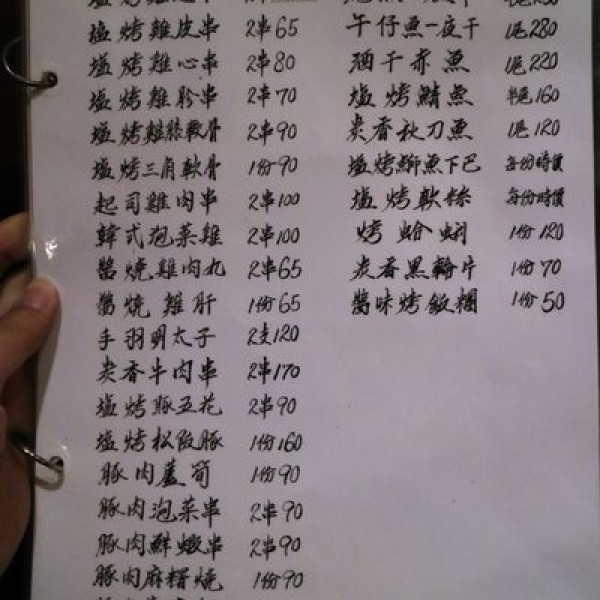 塩烤雞皮串 2串65
塩烤雞心串 2串80
塩烤雞胗串 2串70
塩烤雞膝軟骨 2串90
塩烤三角軟骨 1份90
起司雞肉串 2串100
韓式泡菜雞 2串100
醬燒雞肉丸 2串65
醬燒雞肝 1份65
手羽明太子 2支120
炭香牛肉串 2串170
塩烤豚五花 2串90
塩烤松阪豚 1份160
豚肉蘆筍 1份90
豚肉泡菜串 2串90
豚肉鮮蝦串 2串90
豚肉麻糬燒 1份90
午仔魚一夜干 1尾280
酒干赤魚 1尾220
塩烤鯖魚 半尾160
炭香秋刀魚 1尾120
塩烤鰤魚下巴 每份時價
塩烤軟絲 每份時價
烤蛤蜊 1份120
炭香黑輪片 1份70
醬味烤飯糰 1份50